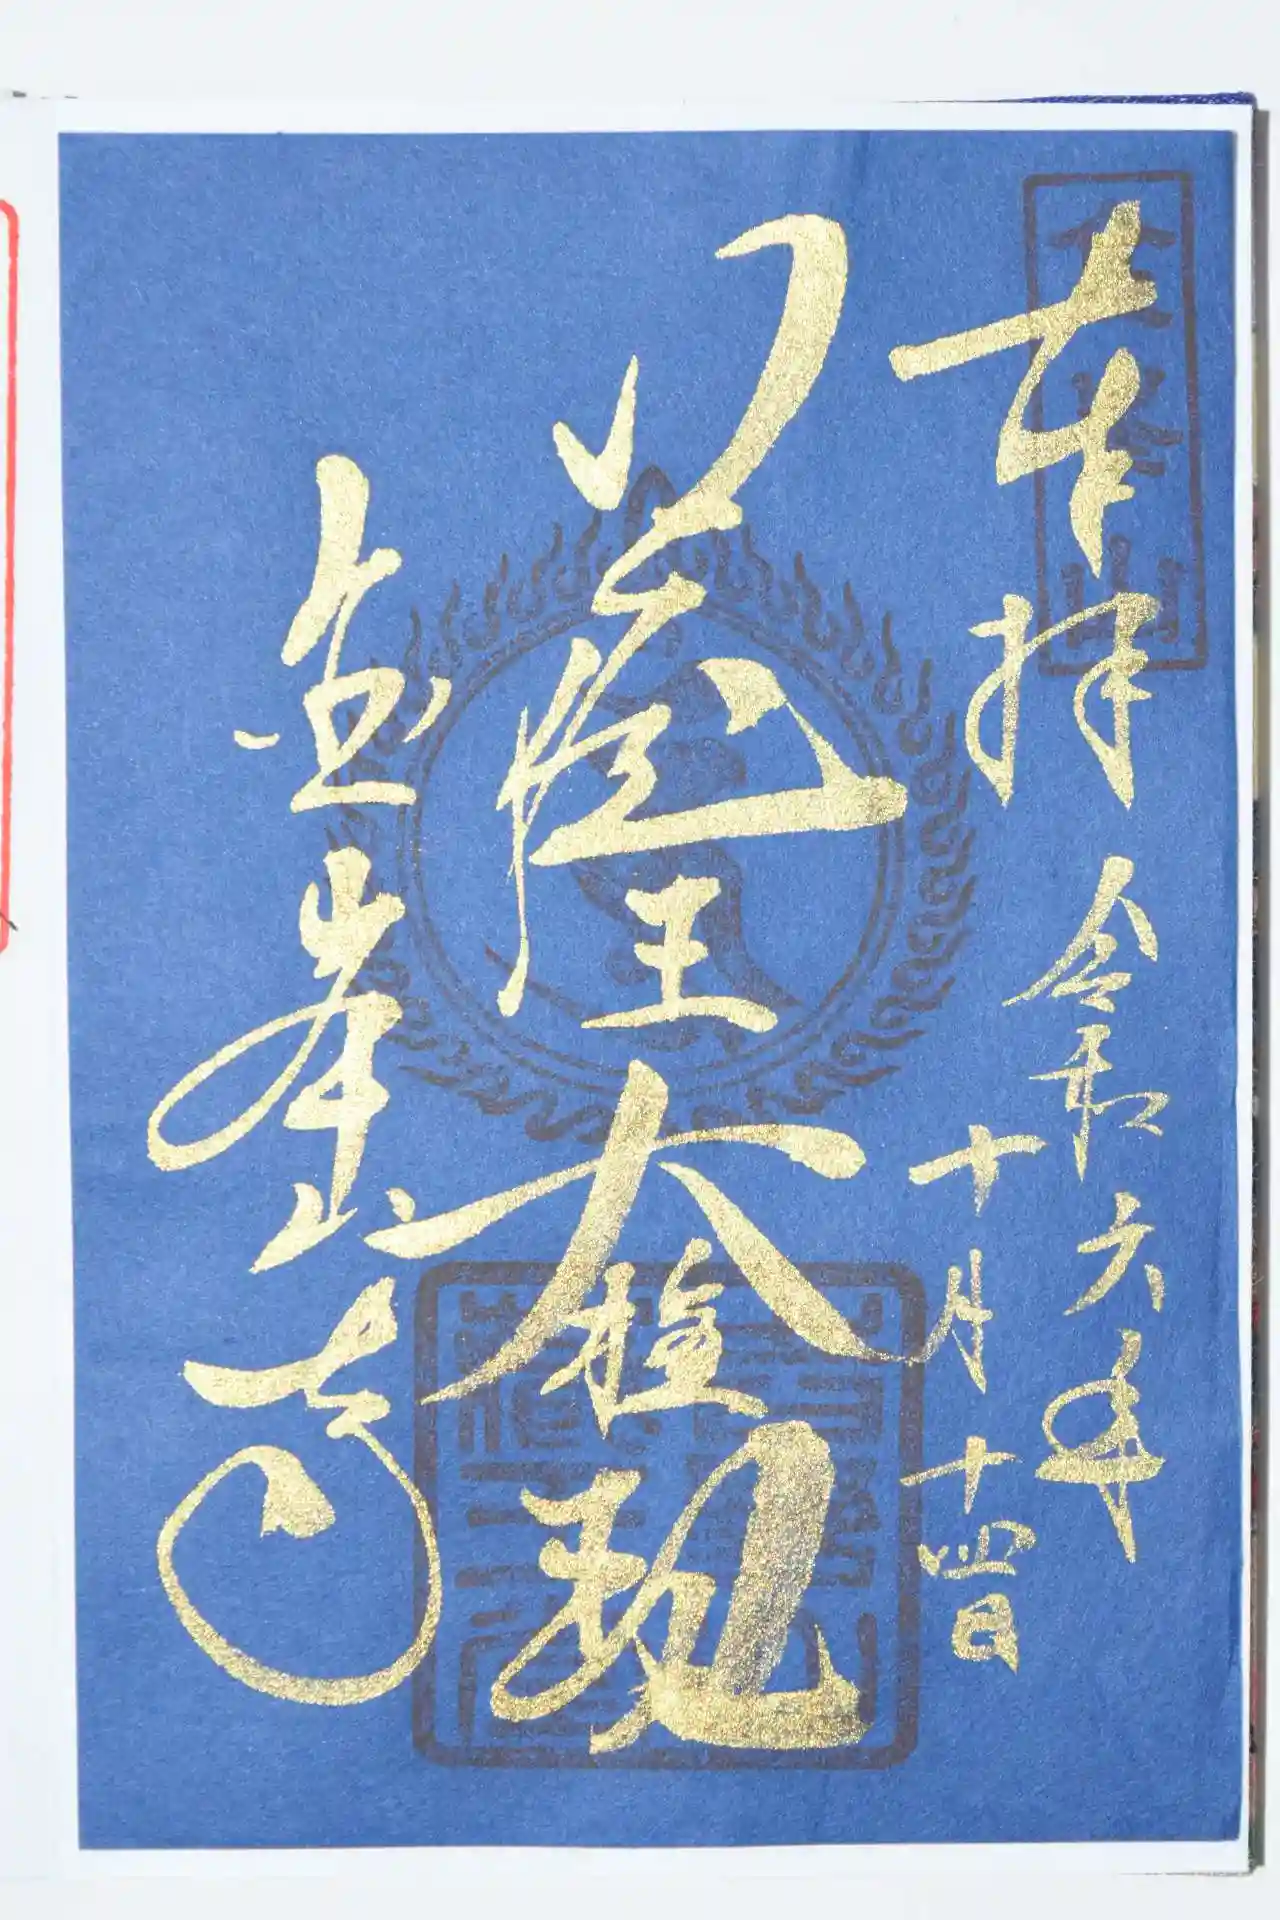 金峯山
奉拝 令和六年
十月十四日
蔵王大権現
金峯山寺